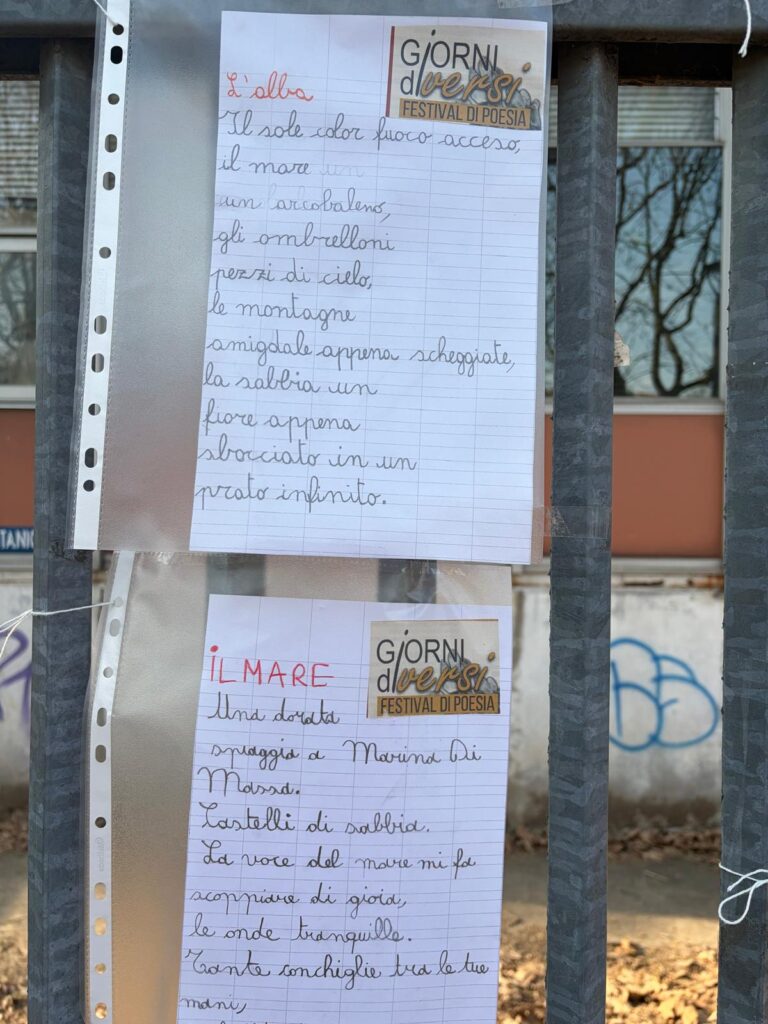 GiORNI
diversi
FESTIVAL DI POESIA
L'alba
Il sole color fuoco acceso,
il mare un
un arcobaleno,
gli ombrelloni
pezzi di cielo,
le montagne
amigdale appena scheggiate,
la sabbia un
fiore appena
sbocciato in un
prato infinito.
TANIC
GiORNI
diversi
FESTIVAL DI POESIA
IL MARE
Una dorata
spiaggia a Marina Di
Massa.
Castelli di sabbia.
La voce del mare mi fa
scoppiare di gioia,
le onde tranquille.
Tante conchiglie tra le tue
mani,